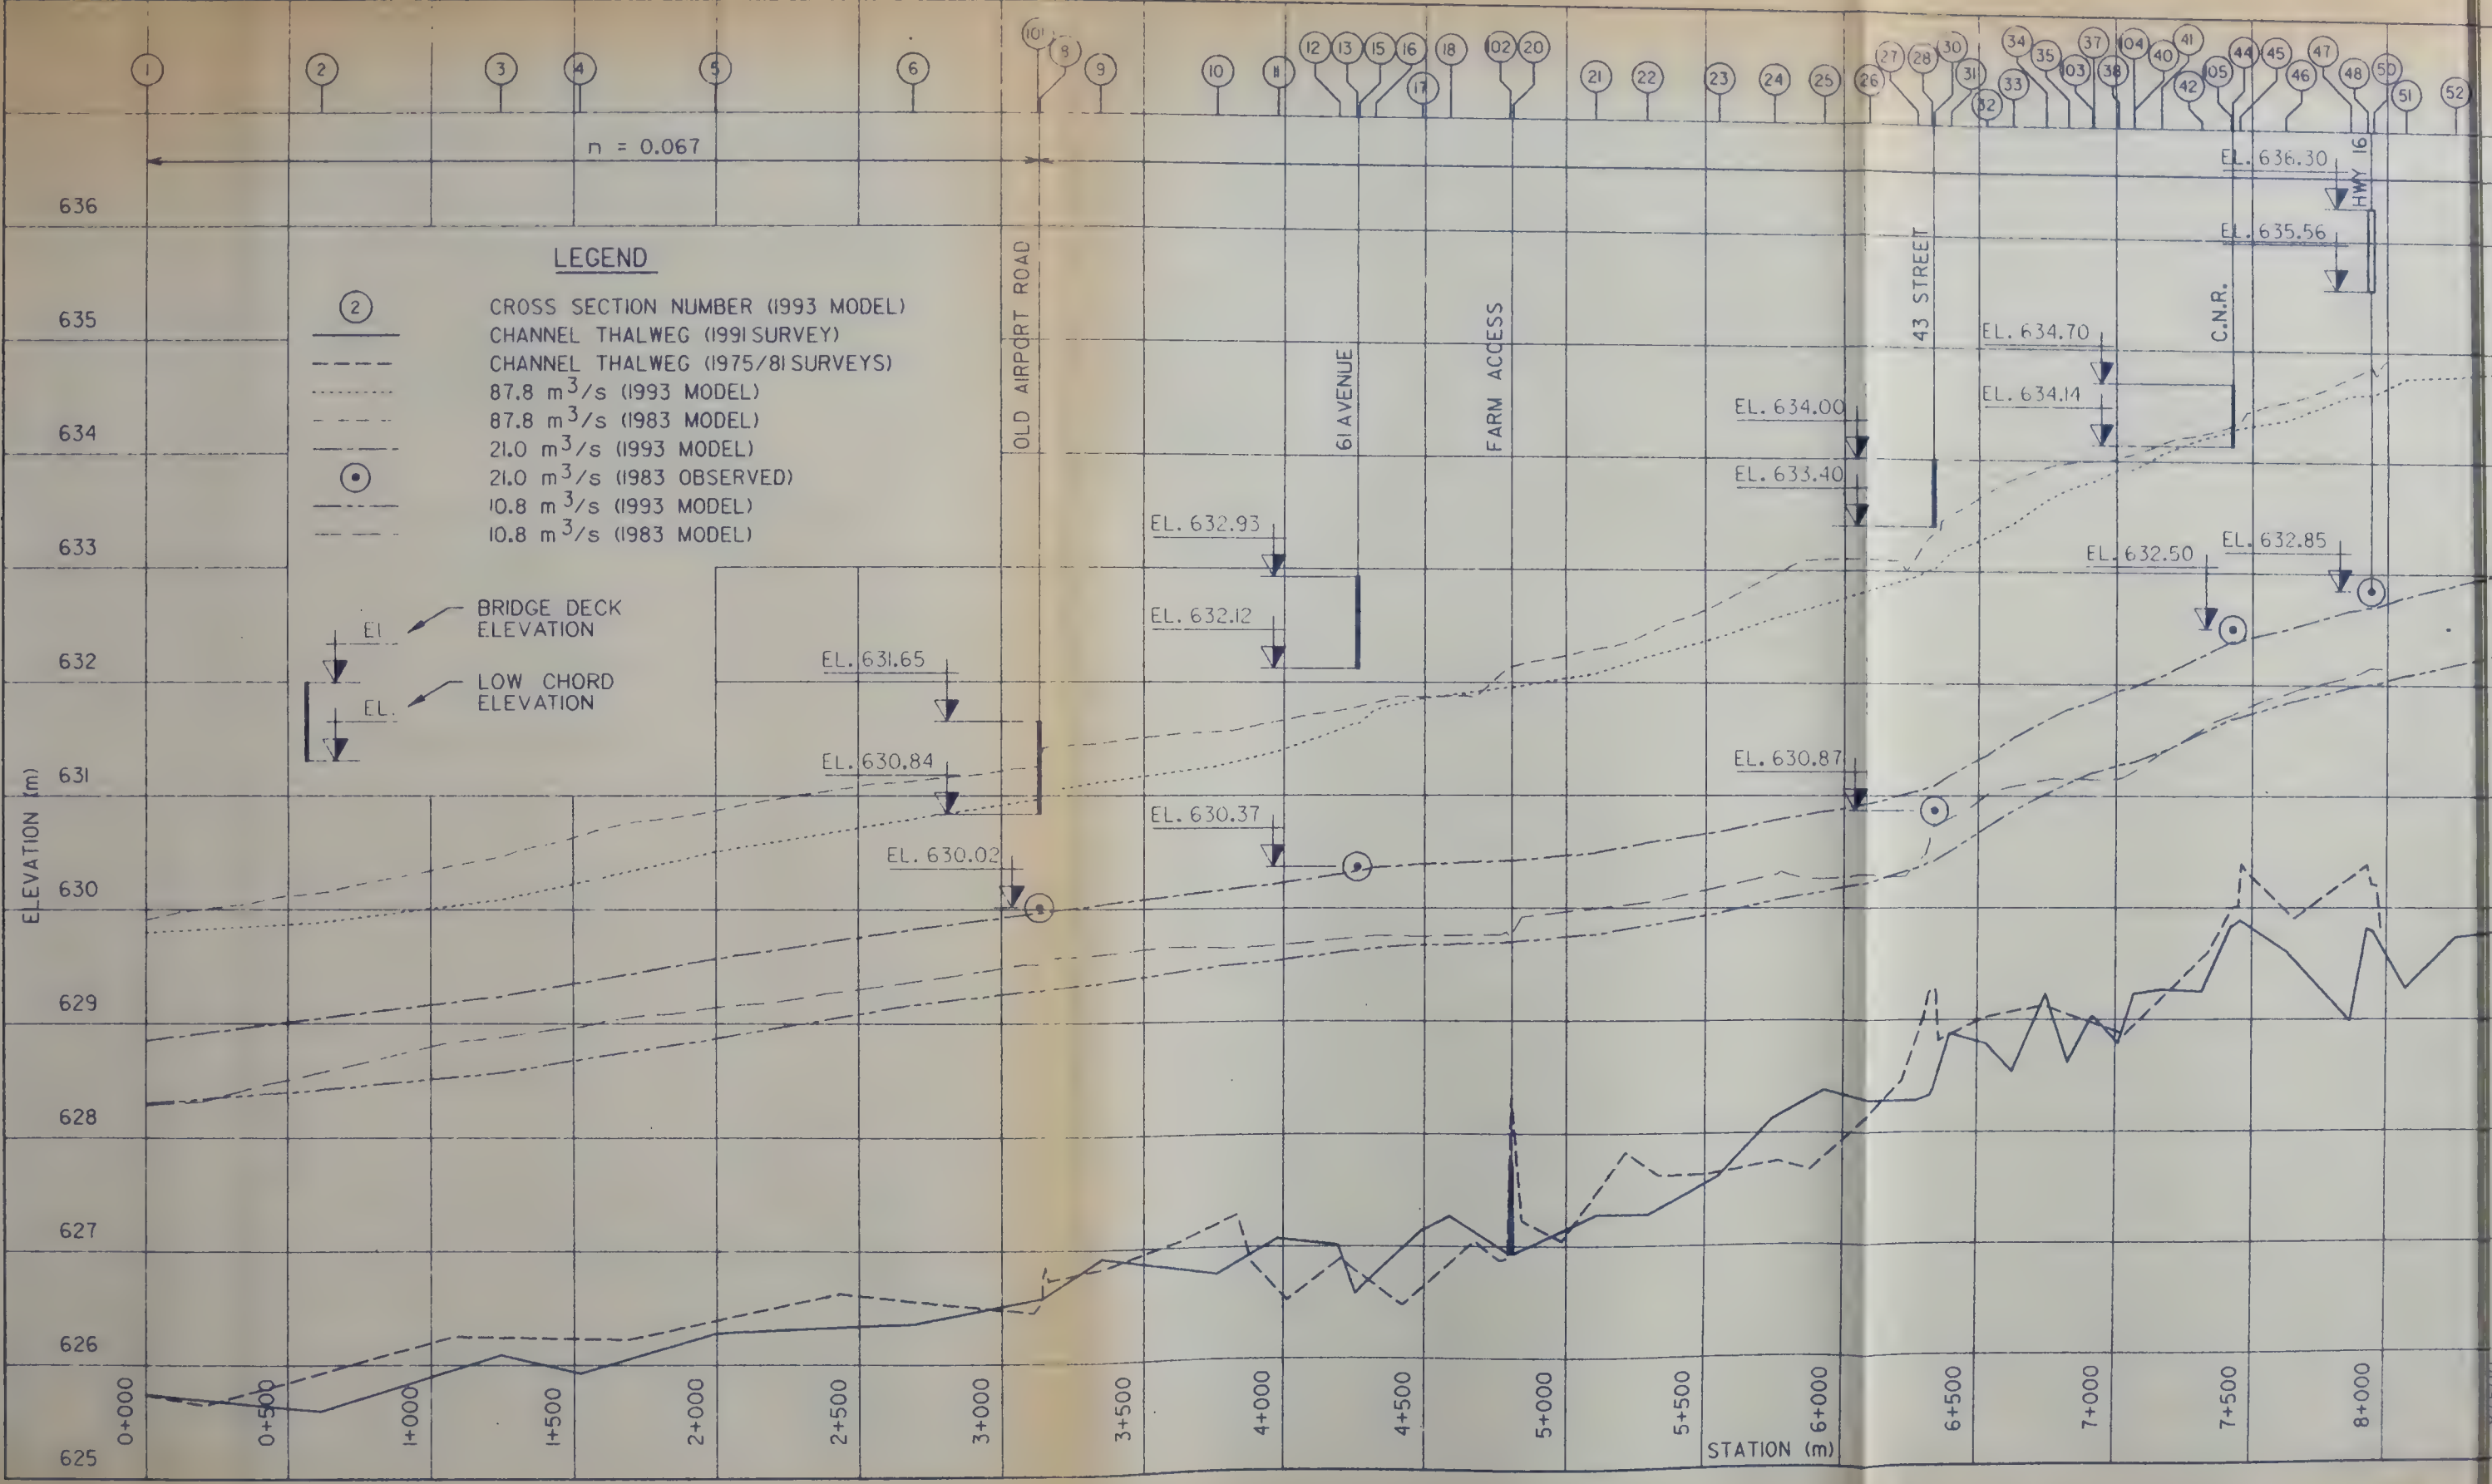 1 2 3 4 5 6 101 8 9 10 11 12 13 15 16 17 18 102 20 21 22 23 24 25 26 27 28 30 31 32 33 34 35 103 37 38 104 40 41 42 105 44 45 46 47 48 50 51 52
n = 0.067
636
635
634
633
632
631
630
629
628
627
626
625
ELEVATION (m)
LEGEND
2 CROSS SECTION NUMBER (1993 MODEL)
CHANNEL THALWEG (1991 SURVEY)
CHANNEL THALWEG (1975/81 SURVEYS)
87.8 m3/s (1993 MODEL)
87.8 m3/s (1983 MODEL)
21.0 m3/s (1993 MODEL)
21.0 m3/s (1983 OBSERVED)
10.8 m3/s (1993 MODEL)
10.8 m3/s (1983 MODEL)
EL.
BRIDGE DECK
ELEVATION
EL.
LOW CHORD
ELEVATION
OLD AIRPORT ROAD
EL. 631.65
EL. 630.84
EL. 630.02
61 AVENUE
EL. 632.93
EL. 632.12
EL. 630.37
FARM ACCESS
43 STREET
EL. 634.00
EL. 633.40
EL. 630.87
C.N.R.
EL. 634.70
EL. 634.14
EL. 632.50
HWY 16
EL. 636.30
EL. 635.56
EL. 632.85
0+000
0+500
1+000
1+500
2+000
2+500
3+000
3+500
4+000
4+500
5+000
5+500
6+000
6+500
7+000
7+500
8+000
STATION (m)